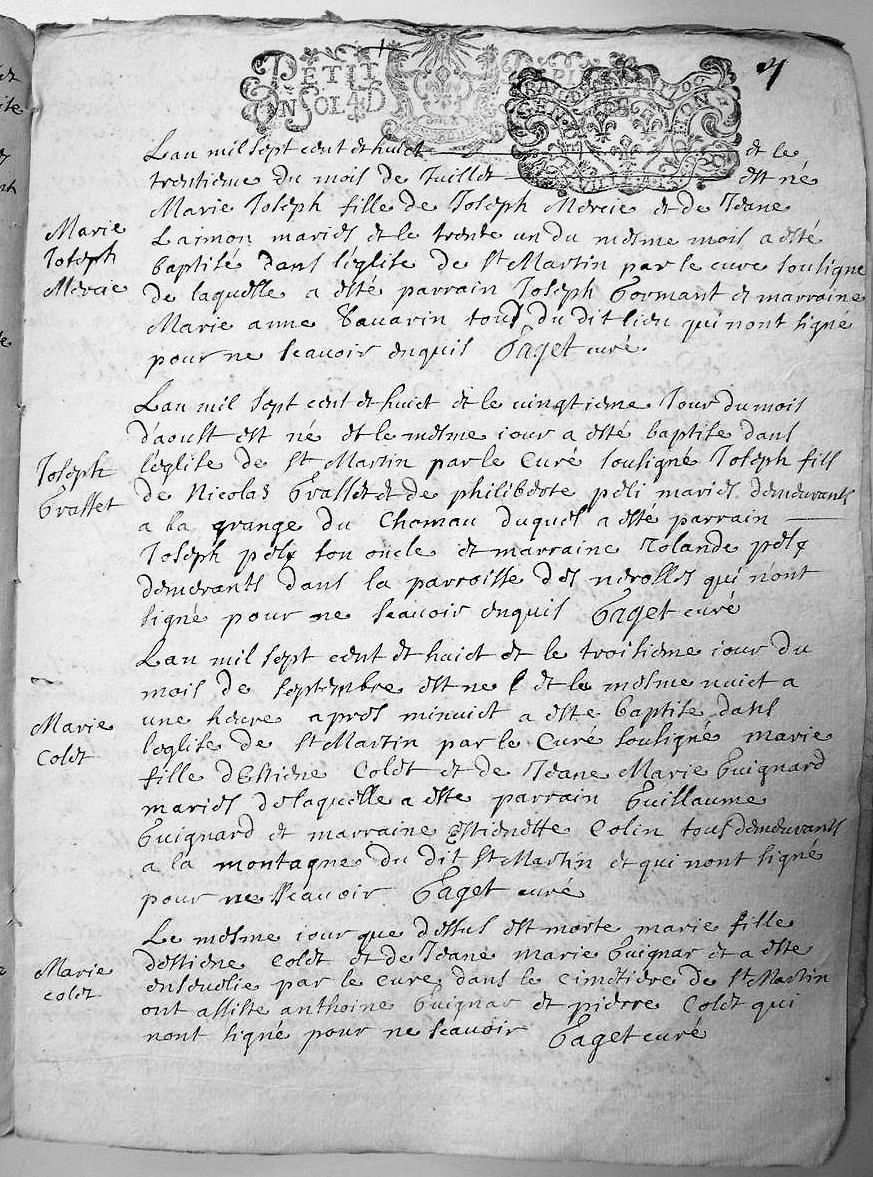 PETIT
ON SOL 4 D
4
Lan mil sept cent et huict et le
trentieme du mois de Juillet est né
Marie Joseph fille de Joseph Mercie et de Jeane
Marie
Joseph
Mercie
Laimon mariés et le trente un du mesme mois a esté
baptisé dans léglise de St Martin par le curé souligné
de laquelle a esté parrain Joseph Gormant et marraine
Marie anne Vavarin tous du dit lieu qui nont signé
pour ne scavoir enquis Paget curé.
Lan mil sept cent et huict et le vingtieme Jour du mois
d'aoust est né et le mesme iour a esté baptise dans
Joseph
Grasset
léglise de St Martin par le Curé souligné Joseph fils
de Nicolas Grasset et de philiberte peli mariés demeurants
a la grange du Chomau duquel a esté parrain
Joseph pely son oncle et marraine Rolande pely
demerants dans la parroisse des nerolles qui n'ont
signé pour ne scavoir enquis Paget curé
Lan mil sept cent et huict et le troisieme iour du
mois de septembre est ne et le mesme nuict a
Marie
Colet
une heure apres minuict a este baptise dans
leglise de St Martin par le Curé souligné marie
fille dEstiene Colet et de Jeane Marie Guignard
mariés de laquelle a este parrain Guillaume
Guignard et marraine Estienette Colin tous demeurants
a la montagne du dit St Martin et qui nont signé
pour ne scavoir Paget curé
Le mesme iour que dessus est morte marie fille
Marie
colet
destiene colet et de Jeane marie Guignar et a este
ensevelie par le curé dans le cimetiere de St Martin
ont assiste anthoine Guignar et pierre Colet qui
nont signé pour ne scavoir Paget curé